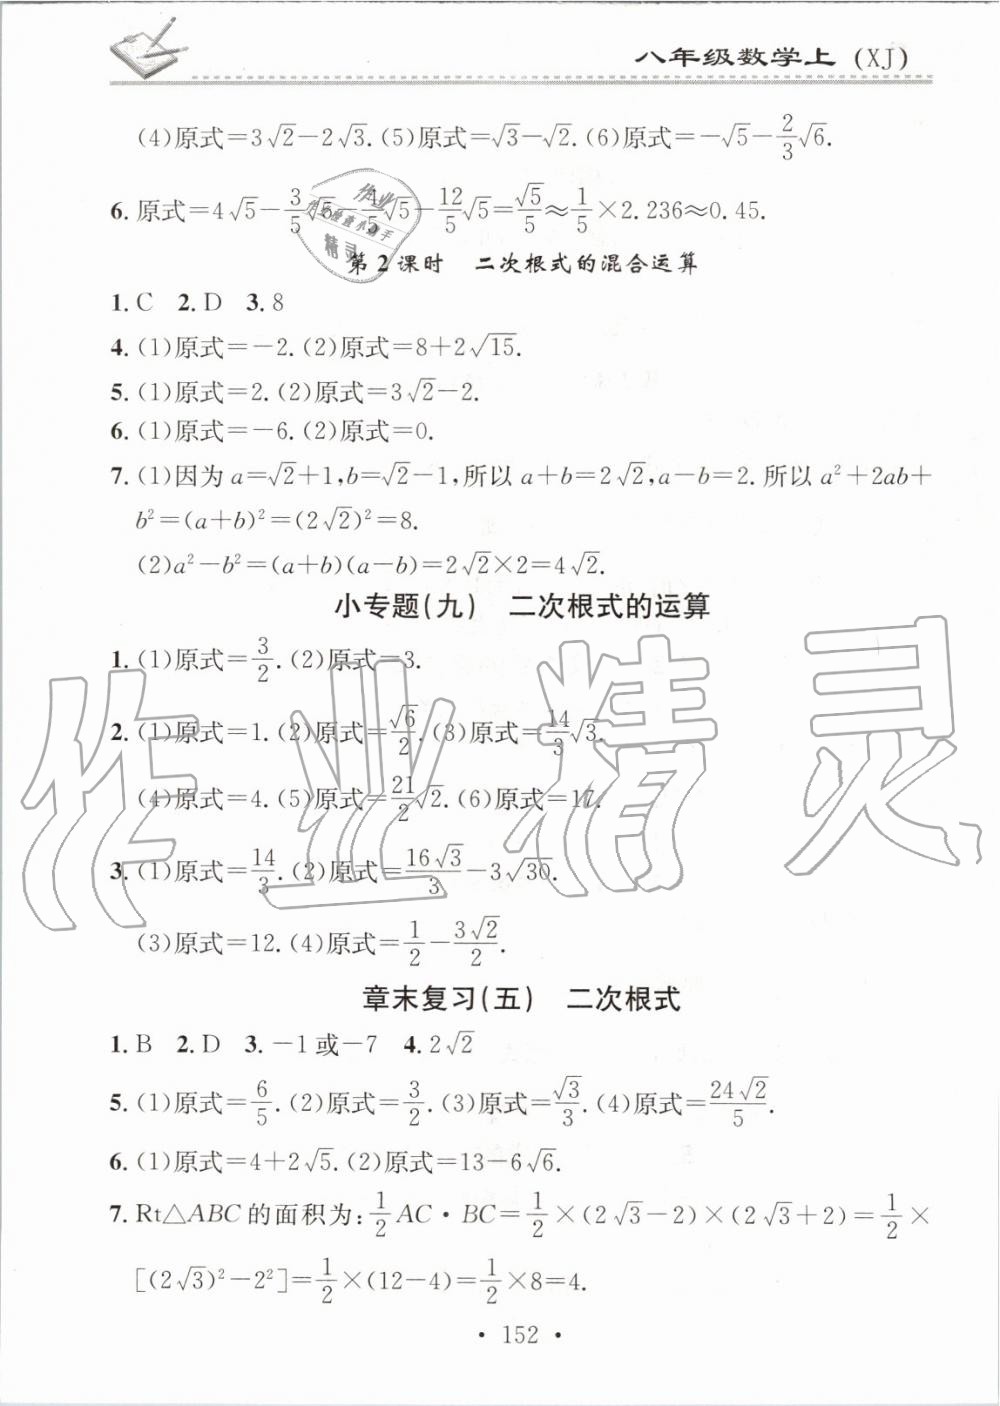 八年级数学上 (XJ)
(4)原式=3√2-2√3.(5)原式=√3-√2.(6)原式=-√5-2/3√6.
6. 原式=4√5-3/5√5-4/5√5-12/5√5=√5/5≈1/5×2.236≈0.45.
第2课时 二次根式的混合运算
1. C 2. D 3. 8
4. (1)原式=-2.(2)原式=8+2√15.
5. (1)原式=2.(2)原式=3√2-2.
6. (1)原式=-6.(2)原式=0.
7. (1)因为a=√2+1,b=√2-1,所以a+b=2√2,a-b=2.所以a²+2ab+
b²=(a+b)²=(2√2)²=8.
(2)a²-b²=(a+b)(a-b)=2√2×2=4√2.
小专题(九) 二次根式的运算
1. (1)原式=3/2.(2)原式=3.
2. (1)原式=1.(2)原式=√6/2.(3)原式=14/3√3.
(4)原式=4.(5)原式=21/2√2.(6)原式=17.
3. (1)原式=14/3.(2)原式=16√3/3-3√30.
(3)原式=12.(4)原式=1/2-3√2/2.
章末复习(五) 二次根式
1. B 2. D 3. -1或-7 4. 2√2
5. (1)原式=6/5.(2)原式=3/2.(3)原式=√3/3.(4)原式=24√2/5.
6. (1)原式=4+2√5.(2)原式=13-6√6.
7. Rt△ABC的面积为:1/2AC·BC=1/2×(2√3-2)×(2√3+2)=1/2×
[(2√3)²-2²]=1/2×(12-4)=1/2×8=4.
· 152 ·
作业精灵